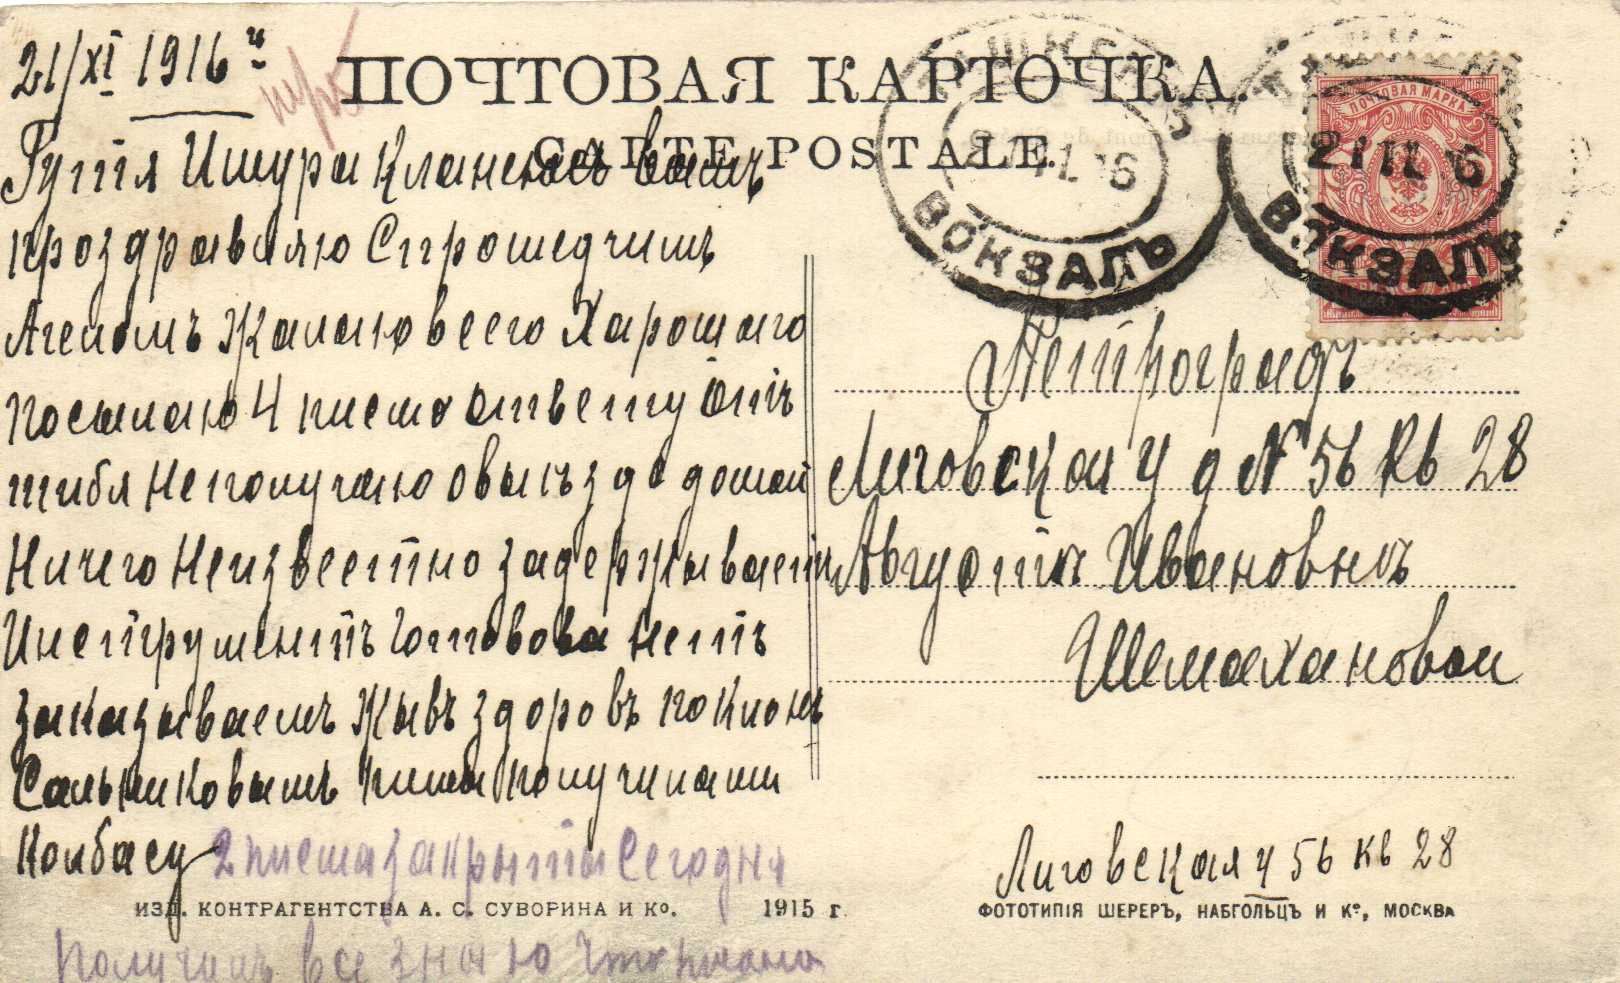 21/XI 1916 г.
ПОЧТОВАЯ КАРТОЧКА.
CARTE POSTALE.
ТАШКЕНТЪ
ВОКЗАЛЪ
ПОЧТОВАЯ МАРКА
21 11 16
ВОКЗАЛЪ
Гутя Ишура Кланеюсь вамъ
проздравляю Спрошедчимъ
Ангеломъ Жалаю всего Харошаго
посылаю 4 писмо ответу отъ
тибя неполучаю овыъзде домой
Ничего Неизвестно задержываетъ
Инструментъ Готовова нетъ
заказываемъ Жывъ здоровъ поклонъ
Сальниковымъ получилали
Колбасу 2 писма закрыты Сегодня
получилъ все знаю
Петроградъ
Лиговская у д № 56 кв 28
Августъ Ивановнъ
Шемахановои
Лиговская у 56 кв 28
ИЗД. КОНТРАГЕНТСТВА А. С. СУВОРИНА И Ко. 1915 г.
ФОТОТИПІЯ ШЕРЕРЪ, НАБГОЛЬЦЪ И Ко, МОСКВА